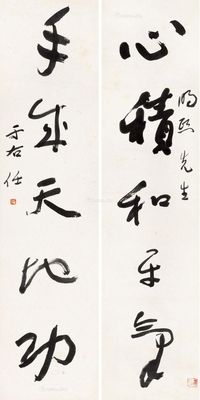 心積和平氣
先生
手成天地功
于右任